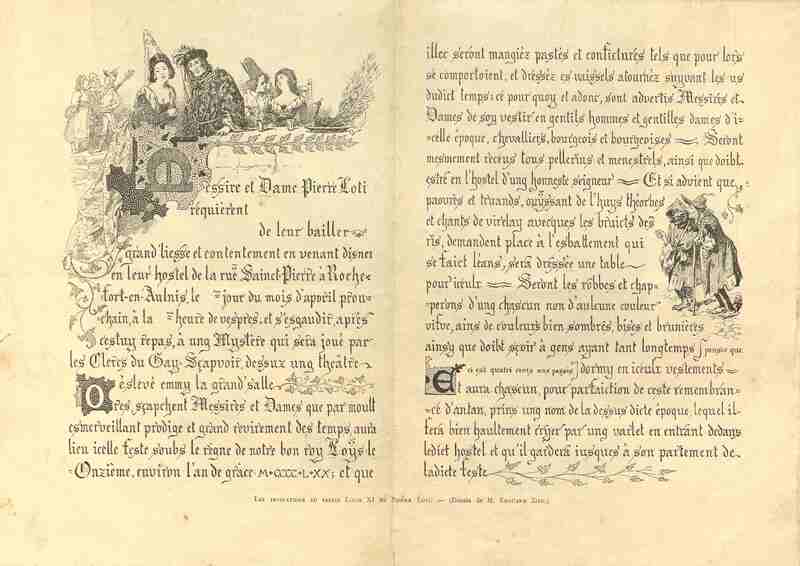 Messire et Dame Pierre Loti
requièrent
de leur bailler
grand liesse et contentement en venant disner
en leur hostel de la ruë Sainct-Pierre à Roche-
fort-en-Aulnis, le =jour du mois d'apvril prou-
chain, à la =heure de vespres, et s'esgaudir, apres
cestuy repas, à ung Mystère qui sera joué par
les Clercs du Gay-Sçapvoir, dessuz ung théâtre
eslevé emmy la grand'salle
Ores, sçapchent Messires et Dames que par moult
esmerveillant prodige et grand revirement des temps aura
lieu icelle feste soubs le règne de notre bon roy Loÿs le
Onzième, environ l'an de grâce M·CCCC·L·XX; et que
illec seront mangiéz pastés et confictures tels que pour lors
se comportoient, et dresséz es vaissels atournéz suyvant les us
dudict temps: cé pour quoy et adonc, sont advertis Messires et
Dames de soy vestir en gentils hommes et gentilles dames d'i-
=celle époque, chevalliers, bourgeois et bourgeoises Seront
mesmement receus tous pellerins et menestrels, ainsi que doibt
estre en l'hostel d'ung honneste seigneur Et si advient que
paouvres et truands, ouÿssant de l'huys théorbes
et chants de virelay avecques les bruicts des
ris, demandent place à l'esbattement qui
se faict léans, sera dressée une table
pour iceulx Seront les robbes et chap-
perons d'ung chascun non d'aulcune couleur
vifve, ains de couleurs bien sombres, bises et brunières
ainsy que doibt sçoir à gens ayant tant longtemps (pensez que
ce çut quatre cents ans passés) dormy en iceulx vestements
Et aura chascun, pour parfaiction de ceste remembran-
cé d'antan, prins ung nom de la dessus dicte époque, lequel il
fera bien haultement crier par ung varlet en entrant dedans
ledict hostel et qu'il gardera jusques à son partement de
ladicte feste
Les invitations du festin Louis XI de Pierre Loti. — (Dessin de M. Edouard Zier.)